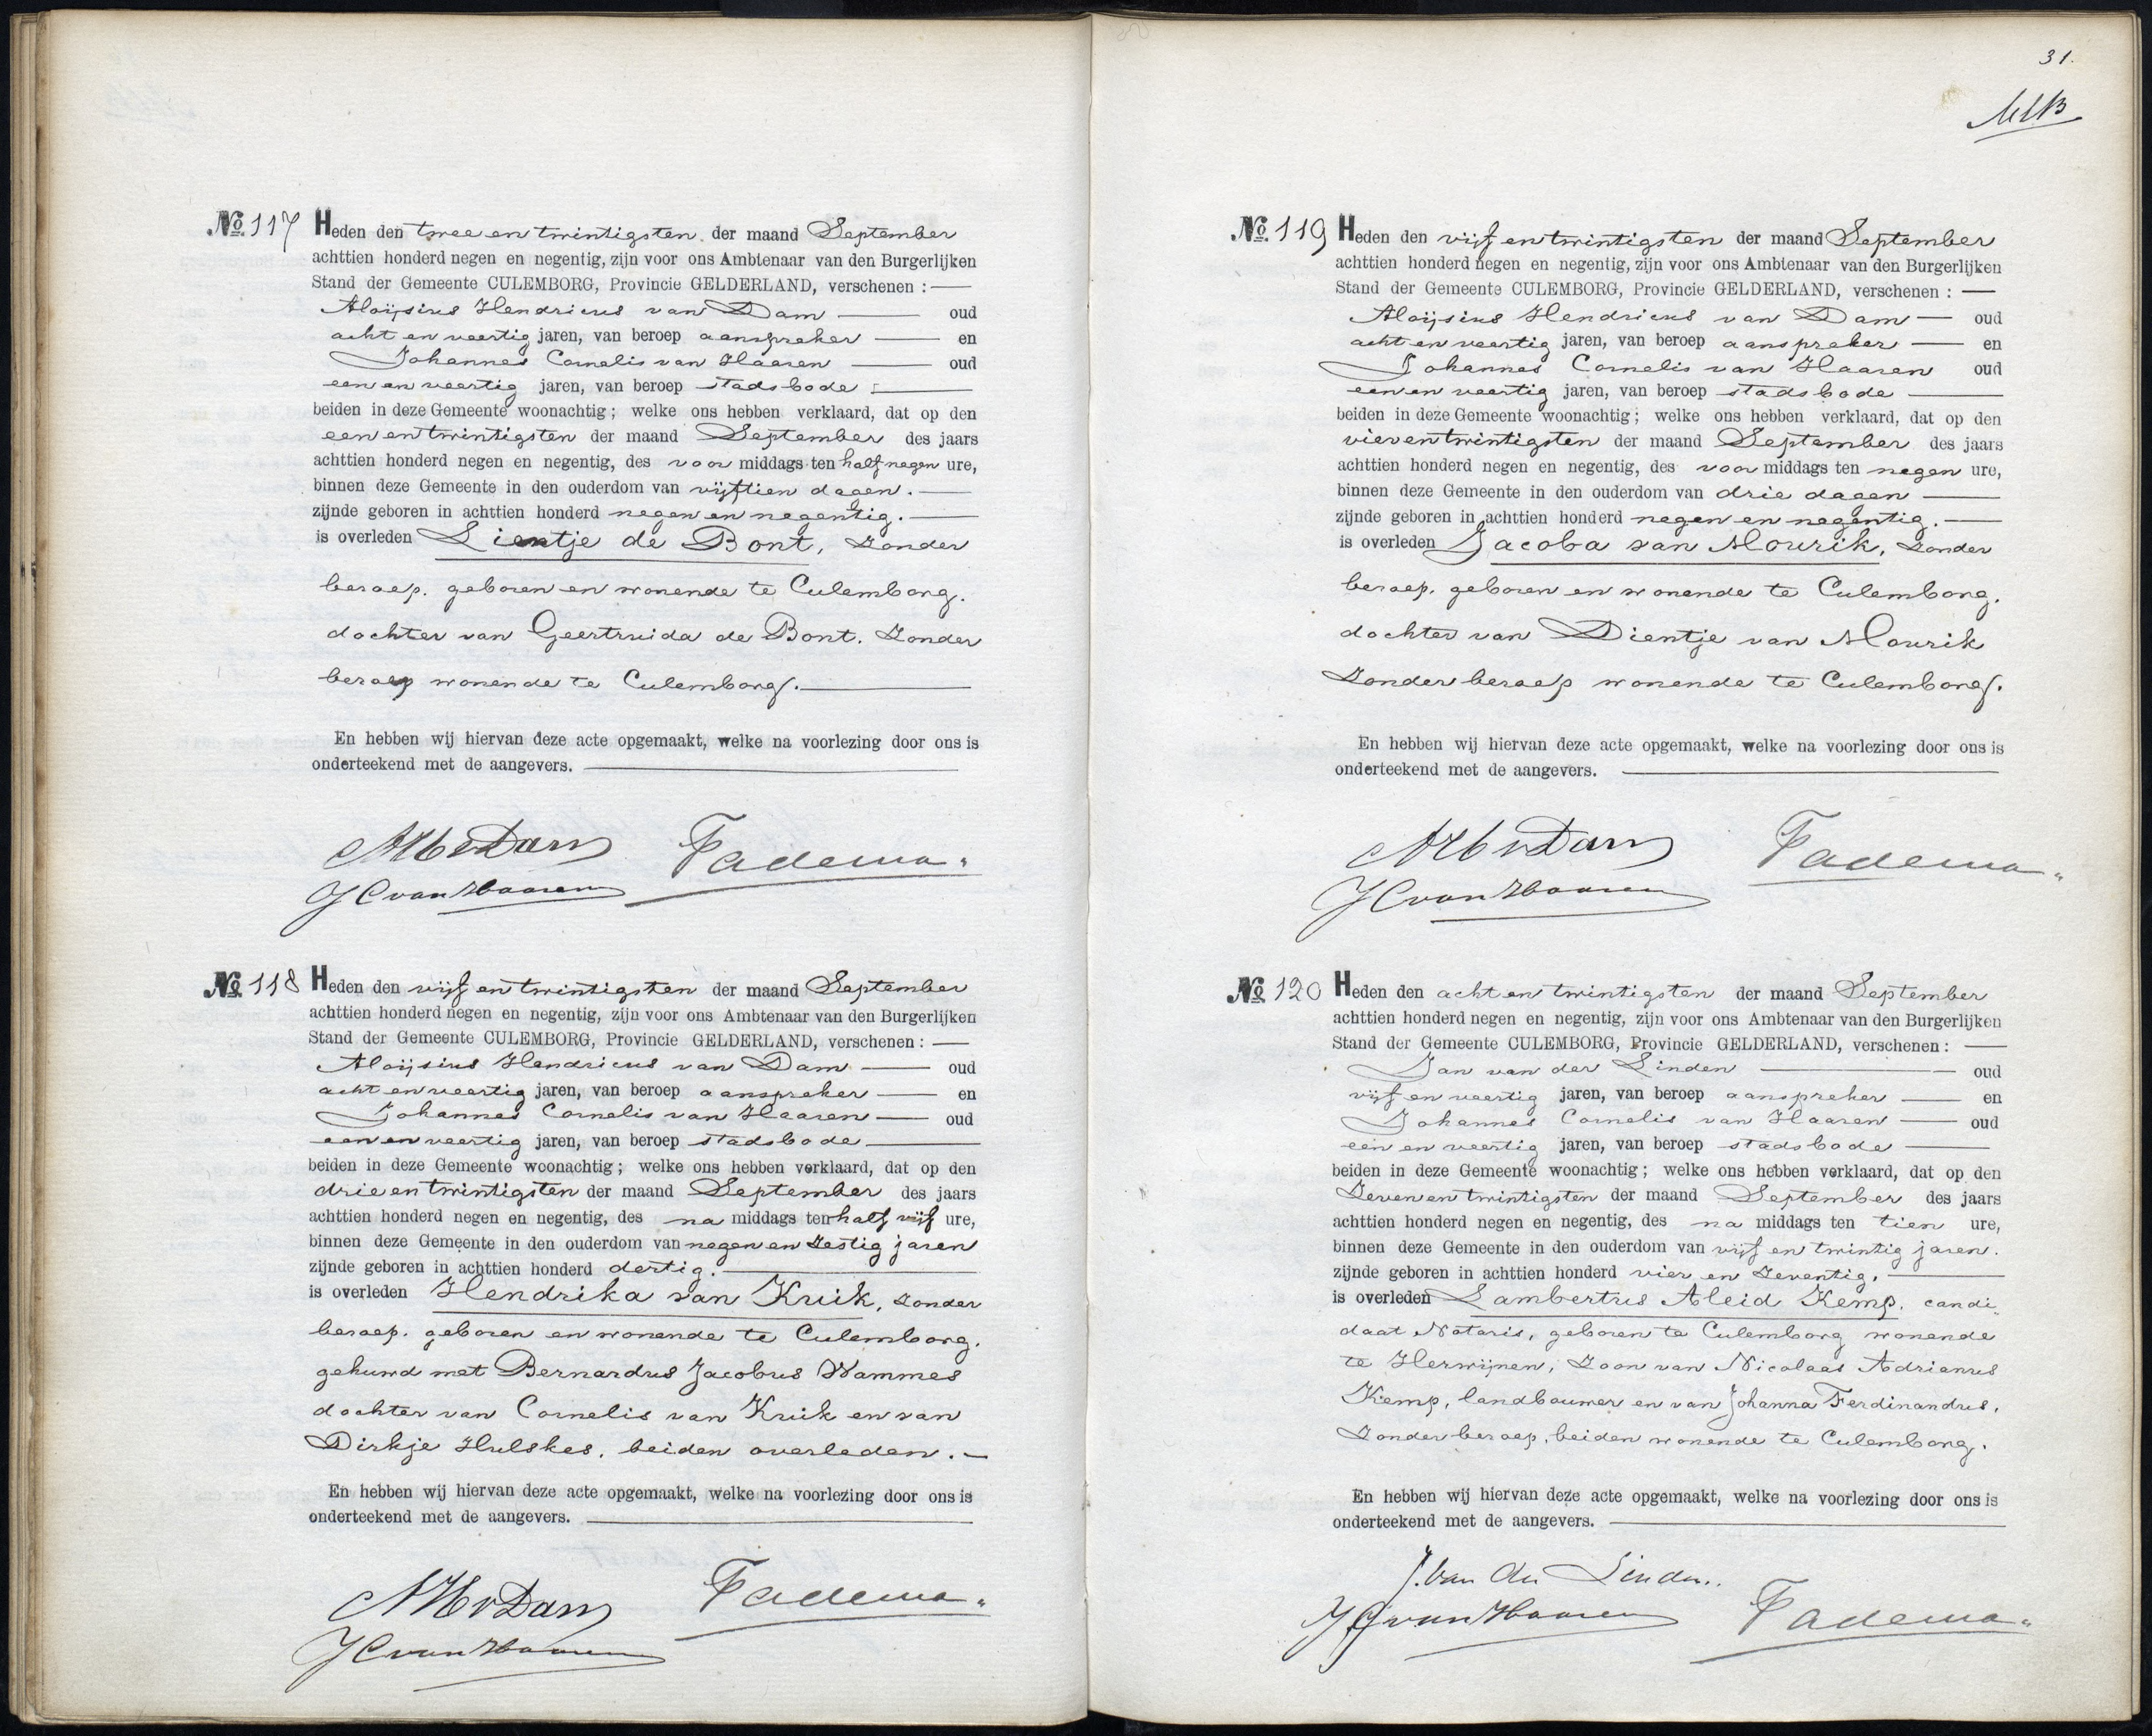 No. 117 Heden den twee en twintigsten der maand September
achttien honderd negen en negentig, zijn voor ons Ambtenaar van den Burgerlijken
Stand der Gemeente CULEMBORG, Provincie GELDERLAND, verschenen :
Aloijsius Hendricus van Dam oud
acht en veertig jaren, van beroep aanspreker en
Johannes Cornelis van Haaren oud
een en veertig jaren, van beroep stadsbode
beiden in deze Gemeente woonachtig; welke ons hebben verklaard, dat op den
een en twintigsten der maand September des jaars
achttien honderd negen en negentig, des voor middags ten half negen ure,
binnen deze Gemeente in den ouderdom van vijftien dagen.
zijnde geboren in achttien honderd negen en negentig.
is overleden Lientje de Bont, zonder
beroep. geboren en wonende te Culemborg.
dochter van Geertruida de Bont. zonder
beroep wonende te Culemborg.
En hebben wij hiervan deze acte opgemaakt, welke na voorlezing door ons is
onderteekend met de aangevers.
AHvDam Tadema
JCvanHaaren
No. 118 Heden den vijf en twintigsten der maand September
achttien honderd negen en negentig, zijn voor ons Ambtenaar van den Burgerlijken
Stand der Gemeente CULEMBORG, Provincie GELDERLAND, verschenen :
Aloijsius Hendricus van Dam oud
acht en veertig jaren, van beroep aanspreker en
Johannes Cornelis van Haaren oud
een en veertig jaren, van beroep stadsbode
beiden in deze Gemeente woonachtig; welke ons hebben verklaard, dat op den
drie en twintigsten der maand September des jaars
achttien honderd negen en negentig, des na middags ten half vijf ure,
binnen deze Gemeente in den ouderdom van negen en zestig jaren
zijnde geboren in achttien honderd dertig.
is overleden Hendrika van Kruik, zonder
beroep. geboren en wonende te Culemborg.
gehuwd met Bernardus Jacobus Wammes
dochter van Cornelis van Kruik en van
Dirkje Hulskes. beiden overleden.
En hebben wij hiervan deze acte opgemaakt, welke na voorlezing door ons is
onderteekend met de aangevers.
AHvDam Tadema
JCvanHaaren
31.
No. 119 Heden den vijf en twintigsten der maand September
achttien honderd negen en negentig, zijn voor ons Ambtenaar van den Burgerlijken
Stand der Gemeente CULEMBORG, Provincie GELDERLAND, verschenen :
Aloijsius Hendricus van Dam oud
acht en veertig jaren, van beroep aanspreker en
Johannes Cornelis van Haaren oud
een en veertig jaren, van beroep stadsbode
beiden in deze Gemeente woonachtig; welke ons hebben verklaard, dat op den
vier en twintigsten der maand September des jaars
achttien honderd negen en negentig, des voor middags ten negen ure,
binnen deze Gemeente in den ouderdom van drie dagen
zijnde geboren in achttien honderd negen en negentig.
is overleden Jacoba van Mourik, zonder
beroep. geboren en wonende te Culemborg.
dochter van Dientje van Mourik
zonder beroep wonende te Culemborg.
En hebben wij hiervan deze acte opgemaakt, welke na voorlezing door ons is
onderteekend met de aangevers.
AHvDam Tadema
JCvanHaaren
No. 120 Heden den acht en twintigsten der maand September
achttien honderd negen en negentig, zijn voor ons Ambtenaar van den Burgerlijken
Stand der Gemeente CULEMBORG, Provincie GELDERLAND, verschenen :
Jan van der Linden oud
vijf en veertig jaren, van beroep aanspreker en
Johannes Cornelis van Haaren oud
een en veertig jaren, van beroep stadsbode
beiden in deze Gemeente woonachtig; welke ons hebben verklaard, dat op den
zeven en twintigsten der maand September des jaars
achttien honderd negen en negentig, des na middags ten tien ure,
binnen deze Gemeente in den ouderdom van vijf en twintig jaren.
zijnde geboren in achttien honderd vier en zeventig.
is overleden Lambertus Aleid Kemp. candi„
daat Notaris, geboren te Culemborg wonende
te Herwijnen, zoon van Nicolaas Adrianus
Kemp, landbouwer en van Johanna Ferdinandus,
zonder beroep. beiden wonende te Culemborg.
En hebben wij hiervan deze acte opgemaakt, welke na voorlezing door ons is
onderteekend met de aangevers.
J. van der Linden.
JCvanHaaren Tadema